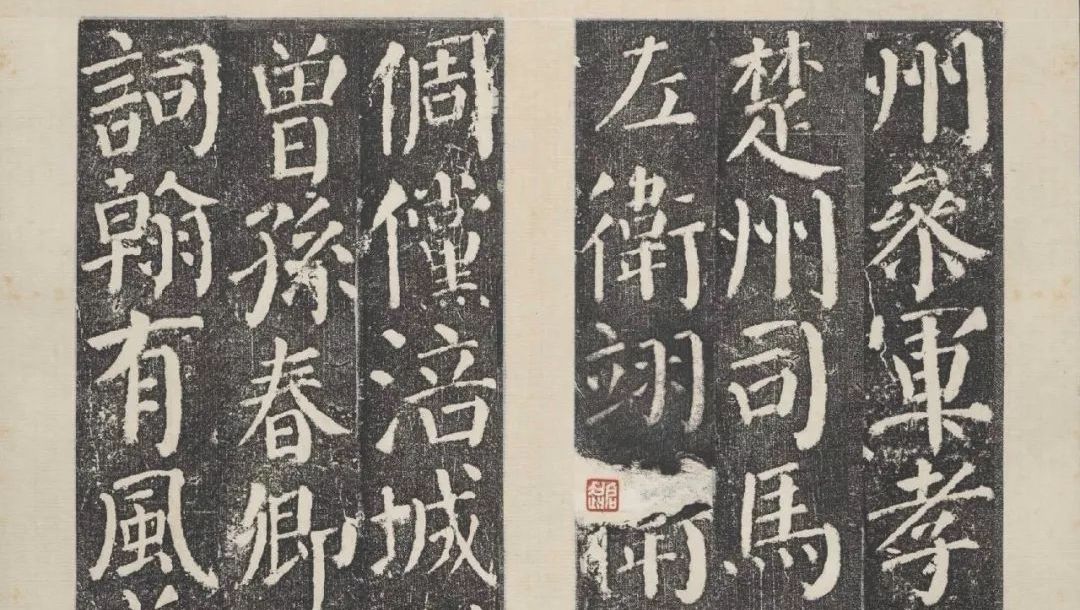 州參軍孝
楚州司馬
左衛翊
倜儻涪城
曾孫春卿
詞翰有風